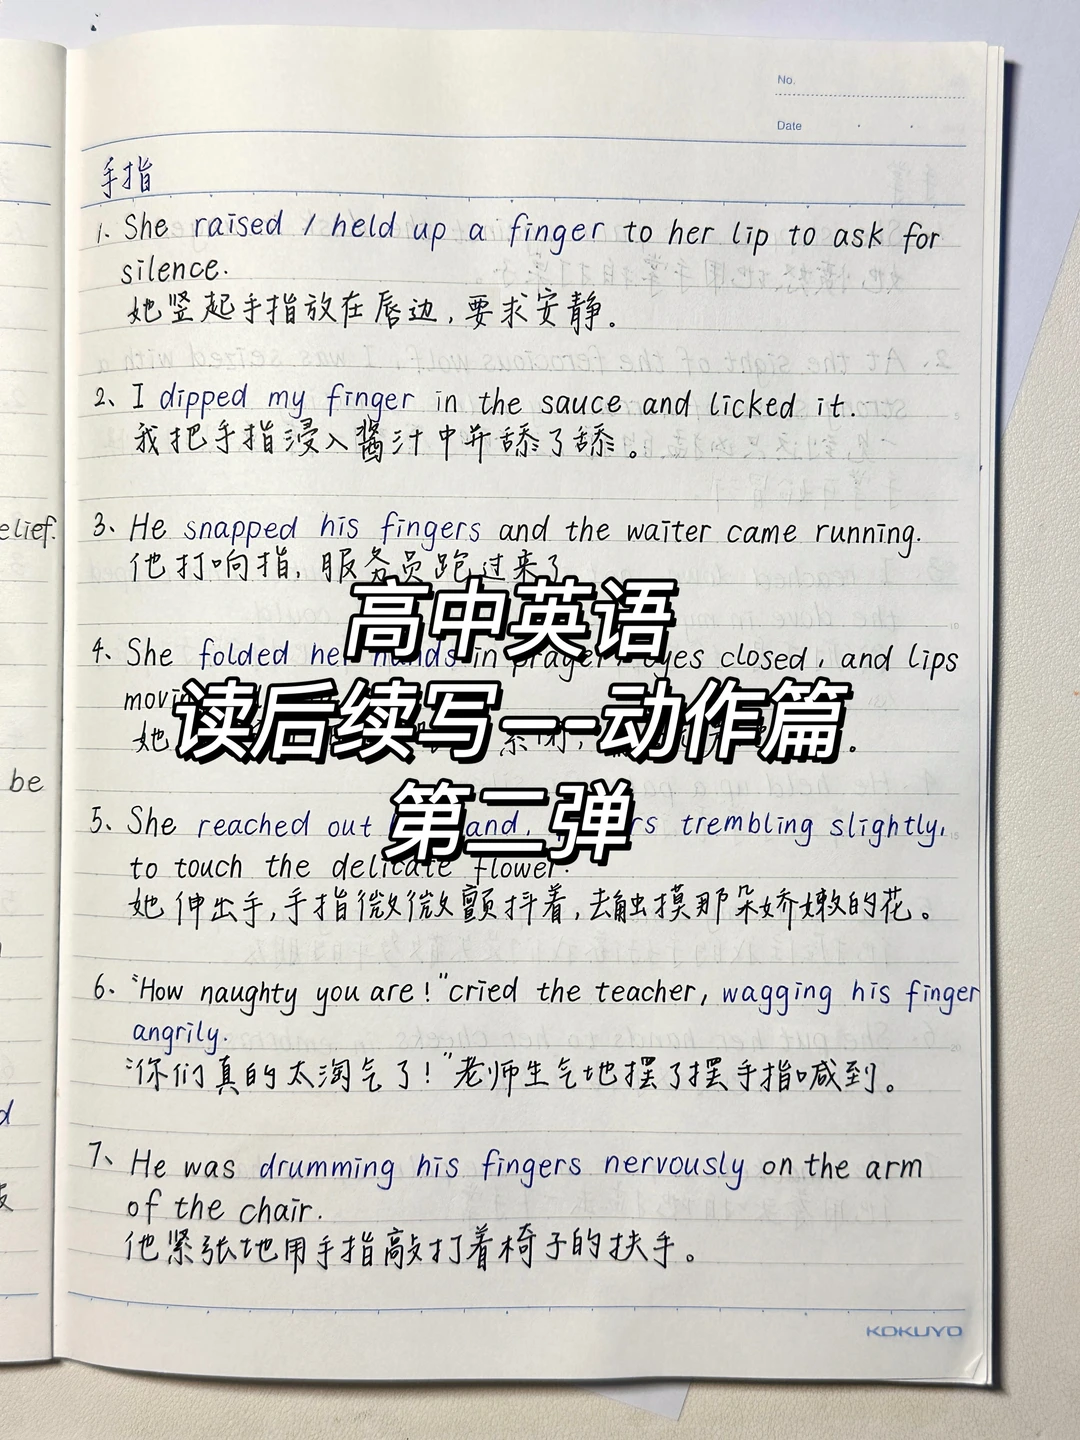 No.
Date
手指
1. She raised / held up a finger to her lip to ask for
silence.
她竖起手指放在唇边,要求安静。
2、I dipped my finger in the sauce and licked it.
我把手指浸入酱汁中并舔了舔。
3、He snapped his fingers and the waiter came running.
他打响指,服务员跑过来了
高中英语
4. She folded her hands in prayer, eyes closed, and lips
读后续写——动作篇
她
第二弹
5. She reached out trembling slightly,
to touch the delicate flower.
她伸出手,手指微微颤抖着,去触摸那朵娇嫩的花。
6. "How naughty you are!" cried the teacher, wagging his finger
angrily.
"你们真的太淘气了!"老师生气地摆了摆手指喊到。
7、He was drumming his fingers nervously on the arm
of the chair.
他紧张地用手指敲打着椅子的扶手。
KOKUYO
elief.
be
d